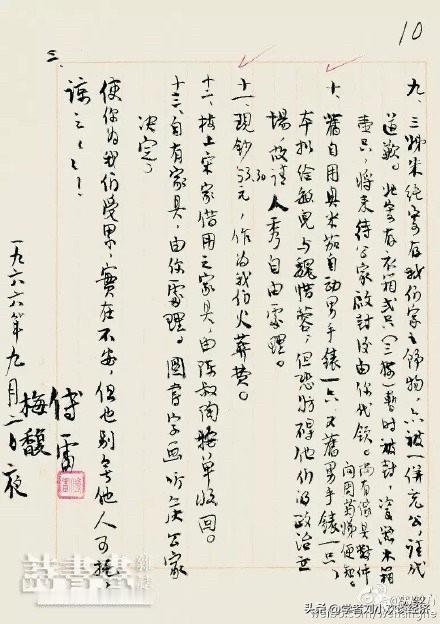 10
九、三姊朱纯寄存我们家之饰物,亦被一併充公,请代
道歉。她寄存衣箱貳只(三楼)暂时被封,瓷器木箱
壹只,将来待公家启封后由你代领。尚有傢具数件,
问周菊娣便知。
十、舊自用奥米茄自动男手錶一只,又舊男手錶一只,
本拟给敏兒与魏惜蓉,但恐妨碍他们的政治立
場,故请人秀自由处理。
十一、现钞53.30元,作为我们火葬费。
十二、楼上宋家借用之家具,由陈叔陶按单收回。
十三、自有家具,由你处理。图书字画听候公家
决定。
使你为我们受累,实在不安,但也别无他人可托,
谅之谅之!
傅雷
梅馥
一九六六年九月二日夜
三.
詩書畫
头条 @学者刘小欢谈经济